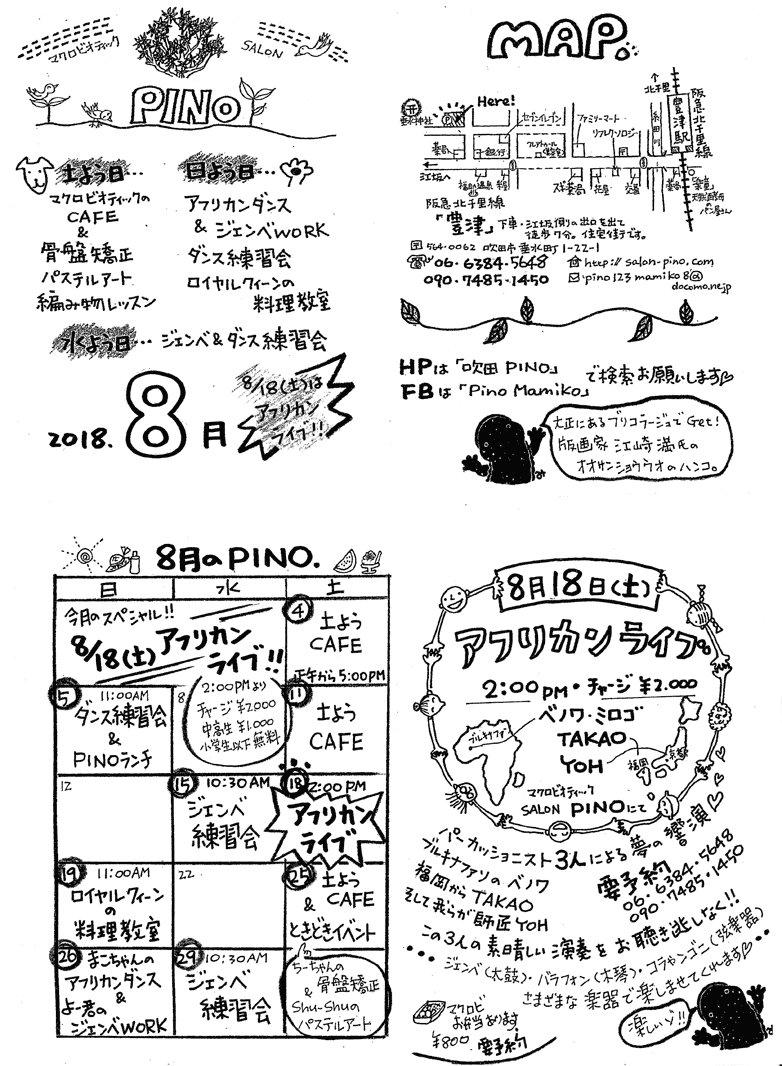 マクロビオティック
SALON
PINO
土よう日…
マクロビオティックの
CAFE
&
骨盤矯正
パステルアート
編み物レッスン
日よう日…
アフリカンダンス
& ジェンベWORK
ダンス練習会
ロイヤルクィーンの
料理教室
水よう日… ジェンベ&ダンス練習会
2018. 8月
8/18(土)は
アフリカン
ライブ!!
MAP.
Here!
セブンイレブン
ファミリーマート
リフレクソロジー
薬局
スギ薬局
花屋
交番
北千里
豊津駅
阪急北千里線
江坂へ
パン屋さん
阪急北千里線
「豊津」下車・江坂側の出口を出て
徒歩7分。住宅街です。
〒564-0062 吹田市垂水町1-22-1
☎06・6384・5648
http://salon-pino.com
090・7485・1450
✉pino123mamiko8@
docomo.ne.jp
HPは「吹田 PINO」
FBは「Pino Mamiko」
で検索お願いします♡
大正にあるブリコラージュでGet!
版画家 江崎満氏の
オオサンショウウオのハンコ。
8月のPINO.
日 水 土
今月のスペシャル!!
8/18(土) アフリカン
ライブ!!
2:00PMより
チャージ ¥2000
中高生 ¥1.000
小学生以下 無料
4
土よう
CAFE
正午から5:00PM
5 11:00AM
ダンス練習会
&
PINOランチ
8
11
土よう
CAFE
12
15 10:30AM
ジェンベ
練習会
18 2:00PM
アフリカン
ライブ
19 11:00AM
ロイヤルクィーン
の
料理教室
22
25 土よう
CAFE
&
ときどきイベント
26 まこちゃんの
アフリカンダンス
&
よー君の
ジェンベWORK
29 10:30AM
ジェンベ
練習会
ちーちゃんの
骨盤矯正
&
Shu-Shuの
パステルアート
8月18日(土)
アフリカンライブ
2:00PM・チャージ ¥2.000
ブルキナファソ
ベノワ・ミロゴ
TAKAO
YOH
福岡
京都
マクロビオティック
SALON PINOにて
パーカッショニスト3人による夢の饗演♡
ブルキナファソの ベノワ
福岡から TAKAO
そして我らが師匠 YOH
要予約
06・6384・5648
090・7485・1450
この3人の素晴しい演奏をお聴き逃しなく!!
…ジェンベ(太鼓)・バラフォン(木琴)・コラやンゴニ(弦楽器)…
さまざまな楽器で楽しませてくれます♡
マクロビ
お弁当あります
¥800 要予約
楽しいゾ!!